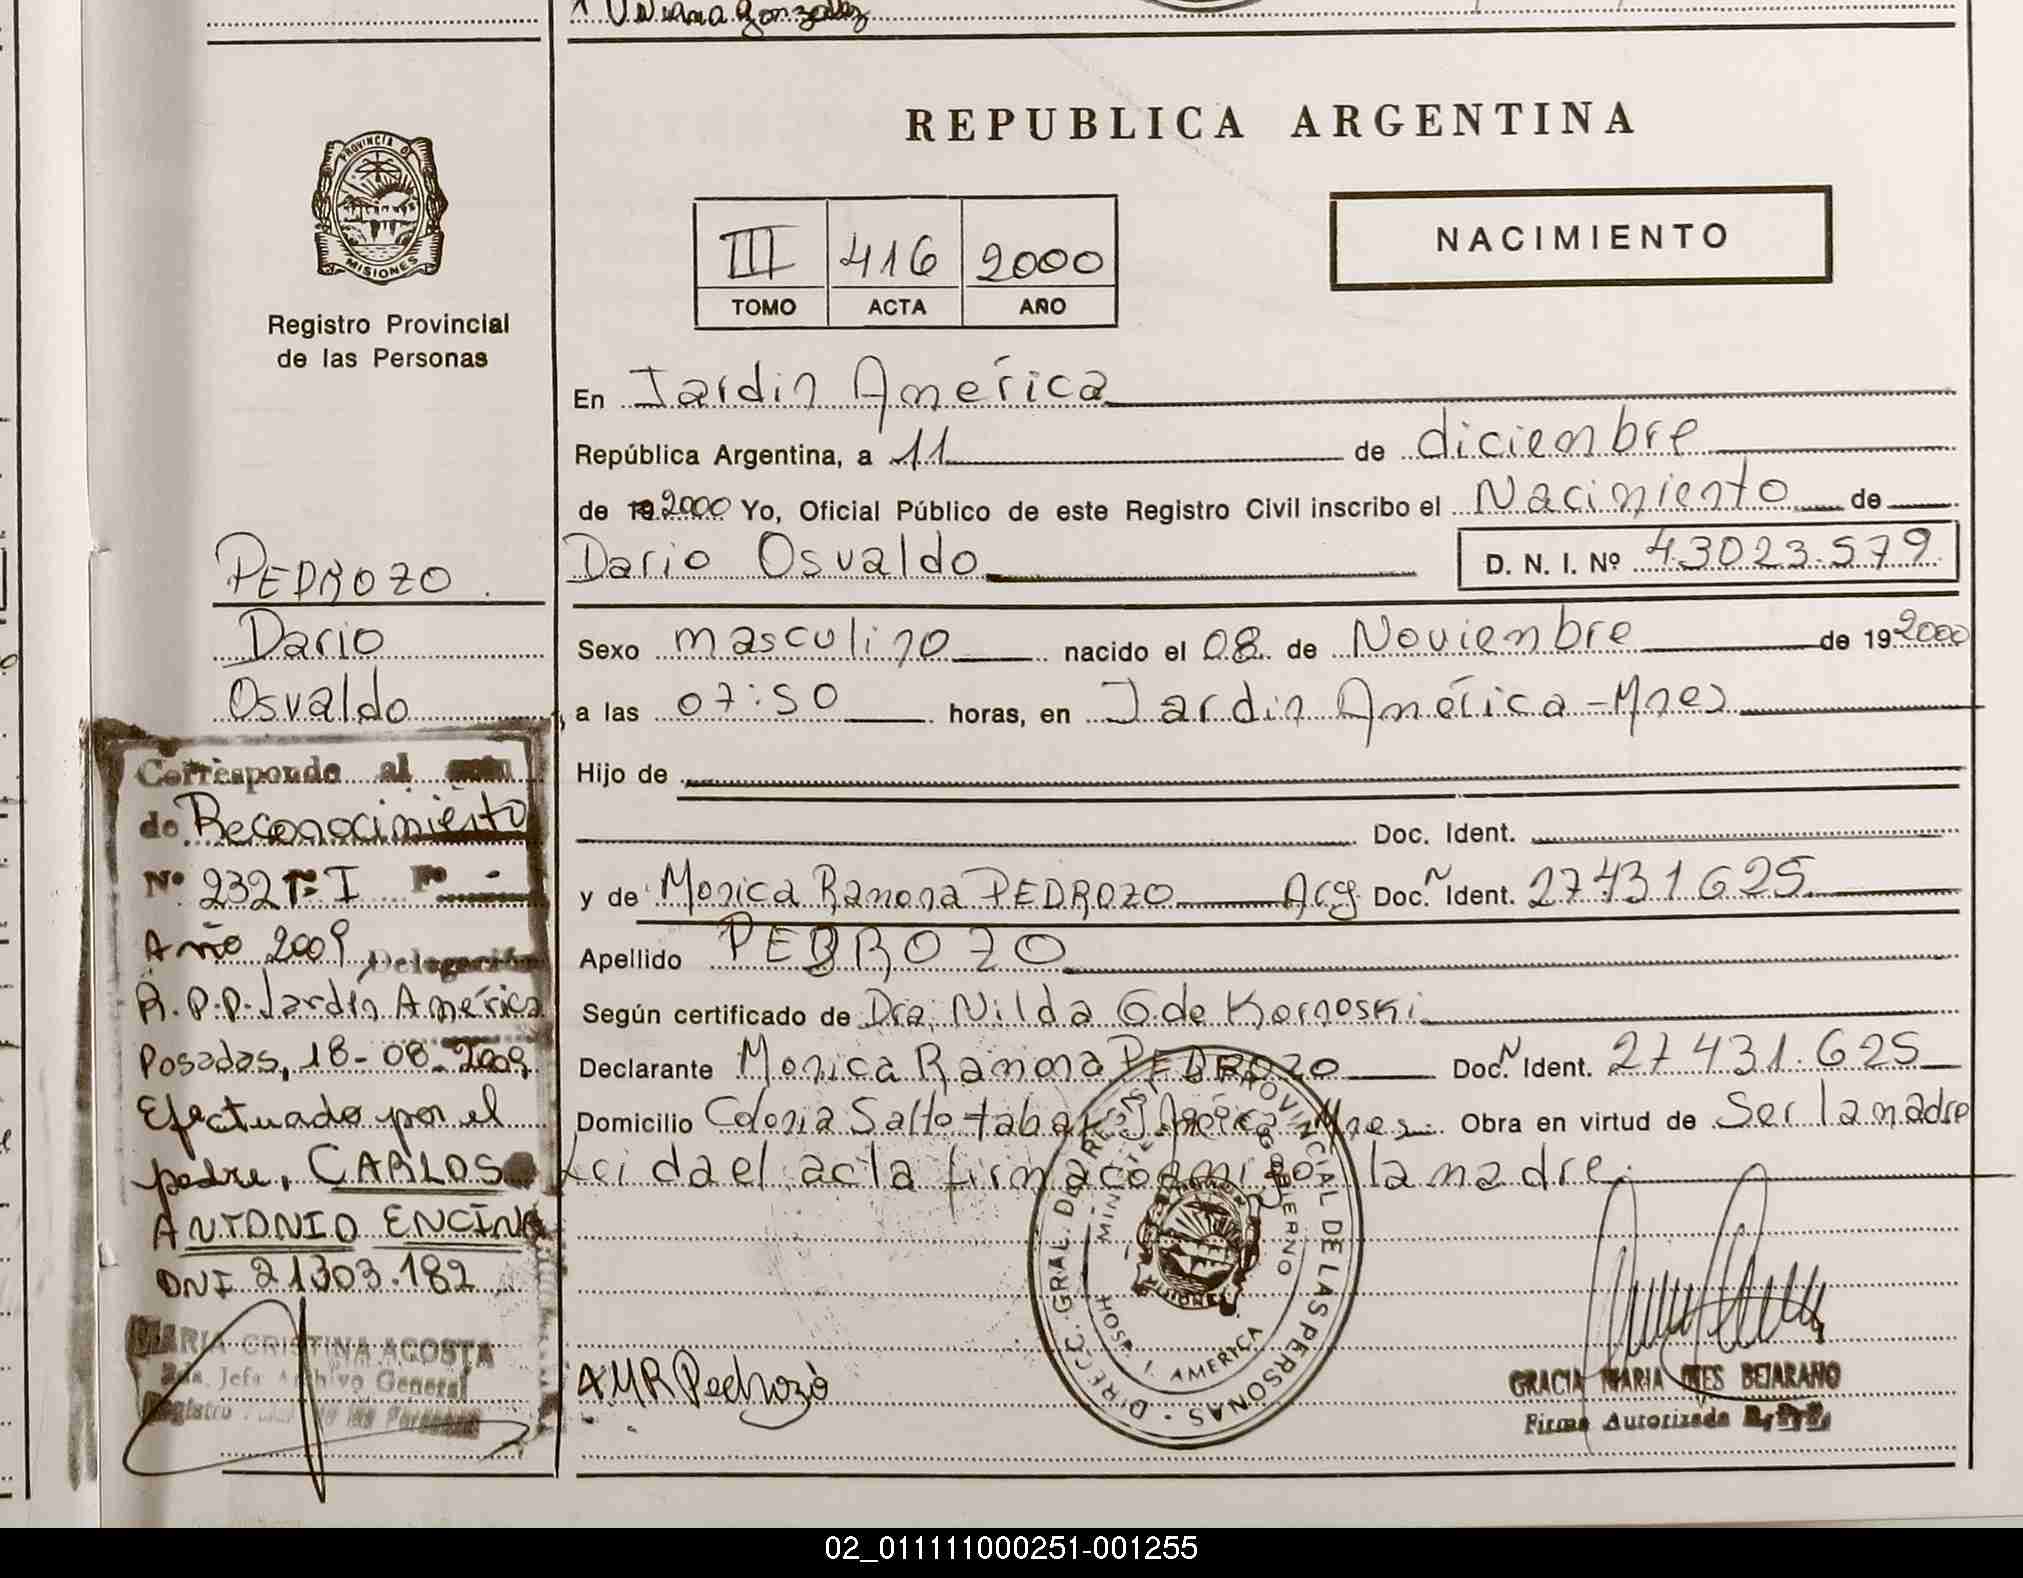 Viviana Gonzalez
PROVINCIA D
MISIONES
Registro Provincial
de las Personas
PEDROZO
Dario
Osvaldo
Corresponde al
de Reconocimiento
Nº 232 Tº I Fº -
Año 2009 Delegación
R.P.P. Jardín América
Posadas, 18-08-2009
Efectuado por el
padre, CARLOS
ANTONIO ENCINA
DNI 21303.182
MARIA CRISTINA ACOSTA
Jefa Archivo General
Registro de las Personas
REPUBLICA ARGENTINA
III 416 2000
TOMO ACTA AÑO
NACIMIENTO
En Jardin América
República Argentina, a 11 de diciembre
de 19 2000 Yo, Oficial Público de este Registro Civil inscribo el Nacimiento de
Dario Osvaldo D. N. I. Nº 43023.579
Sexo masculino nacido el 08 de Noviembre de 19 2000
a las 07:50 horas, en Jardin América - Mnes
Hijo de
Doc. Ident.
y de Monica Ramona PEDROZO Arg Doc. N Ident. 27431625
Apellido PEDROZO
Según certificado de Dra. Nilda G. de Kornoski
Declarante Monica Ramona PEDROZO Doc. N Ident. 27431.625
Domicilio Colonia Salto tabak J. América Mnes Obra en virtud de Ser la madre
Leida el acta firma conmigo la madre.
DIRECC. GRAL. DE REGIST. PROVINCIAL DE LAS PERSONAS
MINISTE GOBIERNO
HOSP. J. AMERICA
MISIONES
MR Pedrozo
GRACIA MARIA INES BEJARANO
Firma Autorizada R.P.P.
02_011111000251-001255